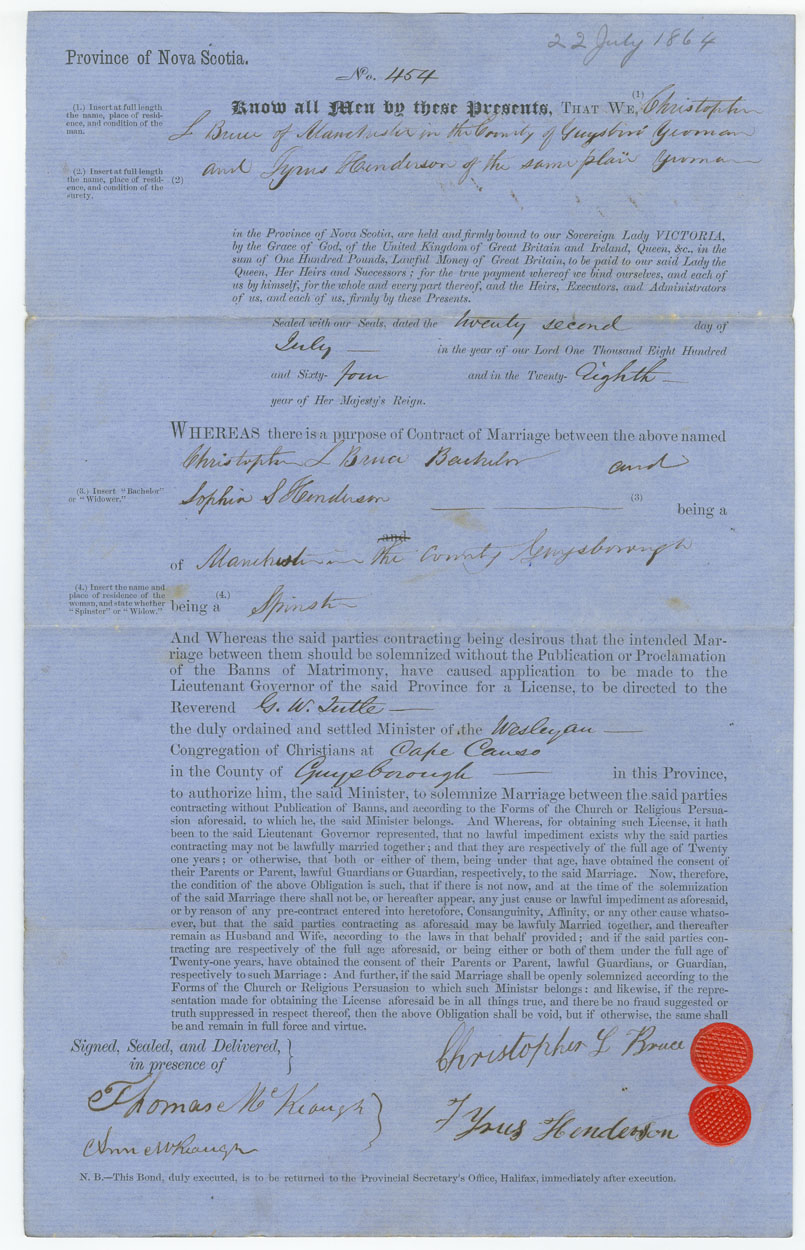 22 July 1864
Province of Nova Scotia.
No. 454
(1.) Insert at full length
the name, place of resid-
ence, and condition of the
man.
Know all Men by these Presents, THAT WE, (1) Christopher
L Bruce of Manchester in the County of Guysboro Yeoman
(2.) Insert at full length
the name, place of resid-
ence, and condition of the
surety.
(2) and Tyrus Henderson of the same place Yeoman
in the Province of Nova Scotia, are held and firmly bound to our Sovereign Lady VICTORIA,
by the Grace of God, of the United Kingdom of Great Britain and Ireland, Queen, &c., in the
sum of One Hundred Pounds, Lawful Money of Great Britain, to be paid to our said Lady the
Queen, Her Heirs and Successors; for the true payment whereof we bind ourselves, and each of
us by himself, for the whole and every part thereof, and the Heirs, Executors, and Administrators
of us, and each of us, firmly by these Presents.
Sealed with our Seals, dated the twenty second day of
July — in the year of our Lord One Thousand Eight Hundred
and Sixty- four and in the Twenty- Eighth —
year of Her Majesty's Reign.
WHEREAS there is a purpose of Contract of Marriage between the above named
Christopher L Bruce Bachelor and
(3.) Insert "Bachelor"
or "Widower,"
Sophia S Henderson — — (3) being a
and
of Manchester in the County Guysborough
(4.) Insert the name and
place of residence of the
woman, and state whether
"Spinster" or "Widow."
being a (4.) Spinster
And Whereas the said parties contracting being desirous that the intended Mar-
riage between them should be solemnized without the Publication or Proclamation
of the Banns of Matrimony, have caused application to be made to the
Lieutenant Governor of the said Province for a License, to be directed to the
Reverend G. W. Tuttle —
the duly ordained and settled Minister of the Wesleyan —
Congregation of Christians at Cape Canso
in the County of Guysborough — in this Province,
to authorize him, the said Minister, to solemnize Marriage between the said parties
contracting without Publication of Banns, and according to the Forms of the Church or Religious Persua-
sion aforesaid, to which he, the said Minister belongs. And Whereas, for obtaining such License, it hath
been to the said Lieutenant Governor represented, that no lawful impediment exists why the said parties
contracting may not be lawfully married together; and that they are respectively of the full age of Twenty
one years; or otherwise, that both or either of them, being under that age, have obtained the consent of
their Parents or Parent, lawful Guardians or Guardian, respectively, to the said Marriage. Now, therefore,
the condition of the above Obligation is such, that if there is not now, and at the time of the solemnization
of the said Marriage there shall not be, or hereafter appear, any just cause or lawful impediment as aforesaid,
or by reason of any pre-contract entered into heretofore, Consanguinity, Affinity, or any other cause whatso-
ever, but that the said parties contracting as aforesaid may be lawfuly Married together, and thereafter
remain as Husband and Wife, according to the laws in that behalf provided; and if the said parties con-
tracting are respectively of the full age aforesaid, or being either or both of them under the full age of
Twenty-one years, have obtained the consent of their Parents or Parent, lawful Guardians, or Guardian,
respectively to such Marriage: And further, if the said Marriage shall be openly solemnized according to the
Forms of the Church or Religious Persuasion to which such Ministsr belongs: and likewise, if the repre-
sentation made for obtaining the License aforesaid be in all things true, and there be no fraud suggested or
truth suppressed in respect thereof, then the above Obligation shall be void, but if otherwise, the same shall
be and remain in full force and virtue.
Signed, Sealed, and Delivered,
in presence of
Christopher L Bruce
Thomas McKeough
Tyrus Henderson
Ann McKeough
N. B.—This Bond, duly executed, is to be returned to the Provincial Secretary's Office, Halifax, immediately after execution.